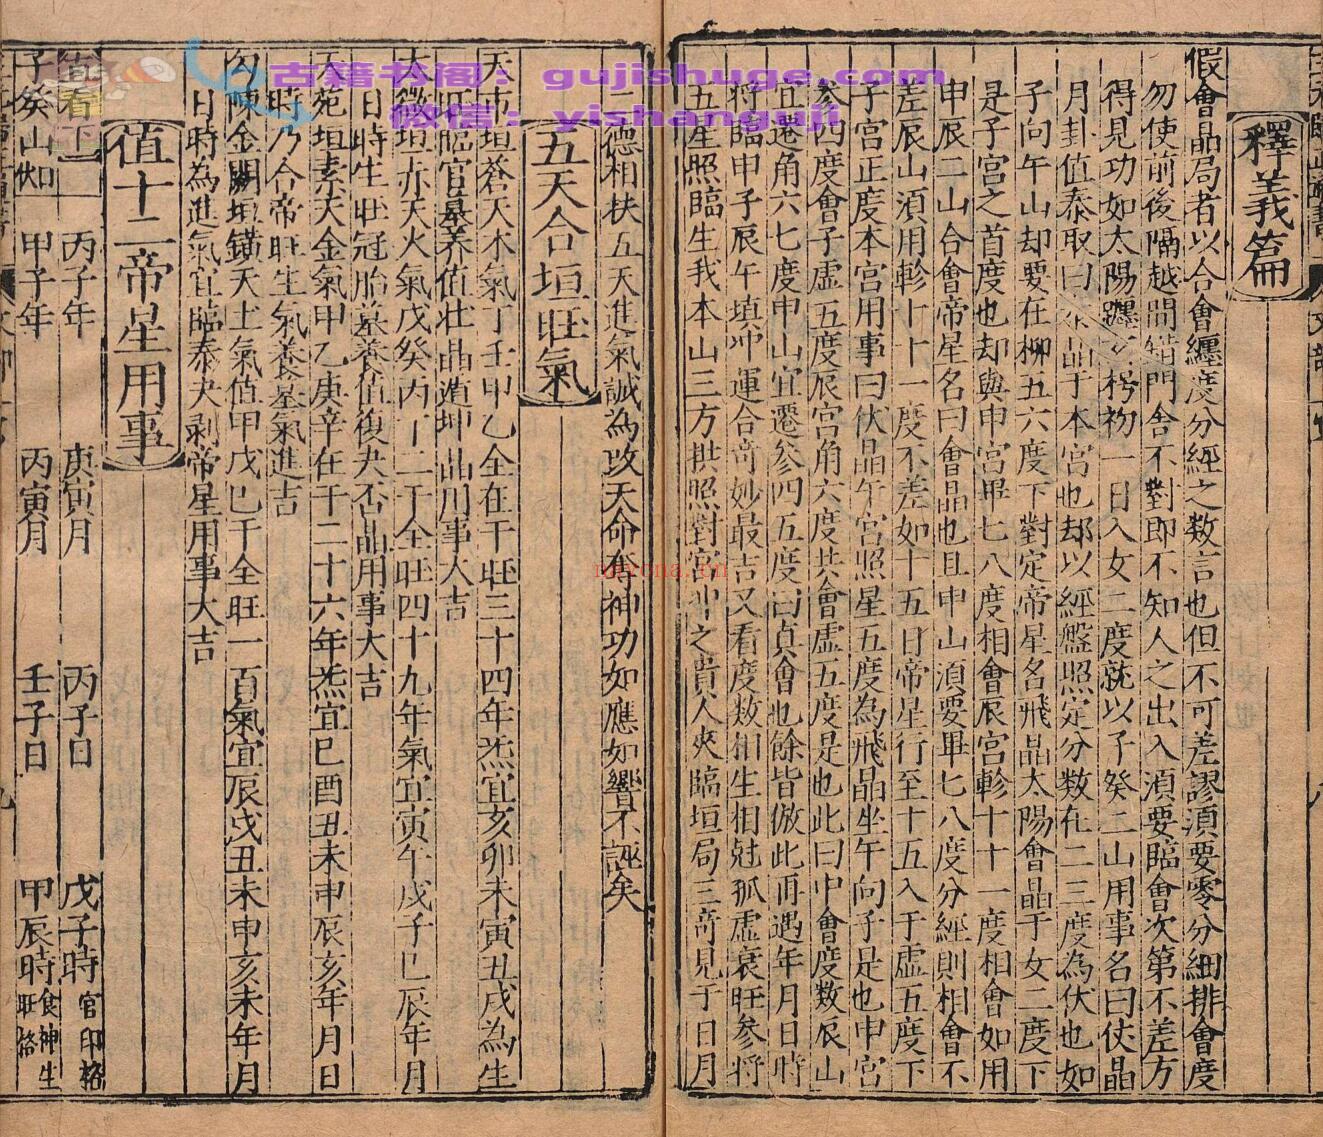 釋義篇
假會晶局者以合會纏度分經之数言也但不可差謬須要零分細排會度
勿使前後隔越間錯門舍不對即不知人之出入須要臨會次第不差方
得見功如太陽躔玄枵初一日入女二度就以子癸二山用事名曰伏晶
月卦值泰取曰晶于本宮也却以經盤照定分数在二三度為伏也如
子向午山却要在柳五六度下對定帝星名飛晶太陽會晶于女二度下
是子宮之首度也却與申宮畢七八度相會辰宮軫十十一度相會如用
申辰二山合會帝星名曰會晶也且申山須要畢七八度分經則相會不
差辰山須用軫十十一度不差如十五日帝星行至十五入于虛五度下
子宮正度本宮用事曰伏晶午宮照星五度為飛晶坐午向子是也申宮
参四度會子虛五度辰宮角六度共會虛五度是也此曰中會度数辰山
宜遷角六七度申山宜遷参四五度曰貞會也餘皆倣此再遇年月日時
將臨甲子辰午填冲運合竒妙最吉又看度数相生相尅孤虛衰旺参將
五星照臨生我本山三方拱照對宮冲之貴人夾臨垣局三竒見于日月
二德相扶五天進氣誠為攺天命奪神功如應如響不誣矣
五天合垣旺氣
天市垣蒼天木氣丁壬甲乙全在干旺三十四年炁宜亥卯未寅丑戌為生
旺臨官墓养值壮晶遁坤晶用事大吉
太微垣赤天火氣戊癸丙丁二干全旺四十九年氣宜寅午戌子巳辰年月
日時生旺冠胎墓養值復夬否晶用事大吉
天苑垣素天金氣甲乙庚辛在干二十六年炁宜巳酉丑未申辰亥年月日
時乃合帝旺生氣養墓氣進吉
勾陳金闕垣鎮天土氣值甲戊己干全旺一百氣宜辰戌丑未申亥未年月
日時為進氣宜臨泰夬剥帝星用事大吉
值十二帝星用事
丙子年 庚寅月 丙子日 戊子時 官印格
子癸山如 甲子年 丙寅月 壬子日 甲辰時 食神生旺格
古籍书阁：gujishuge.com
微信：yishanguji